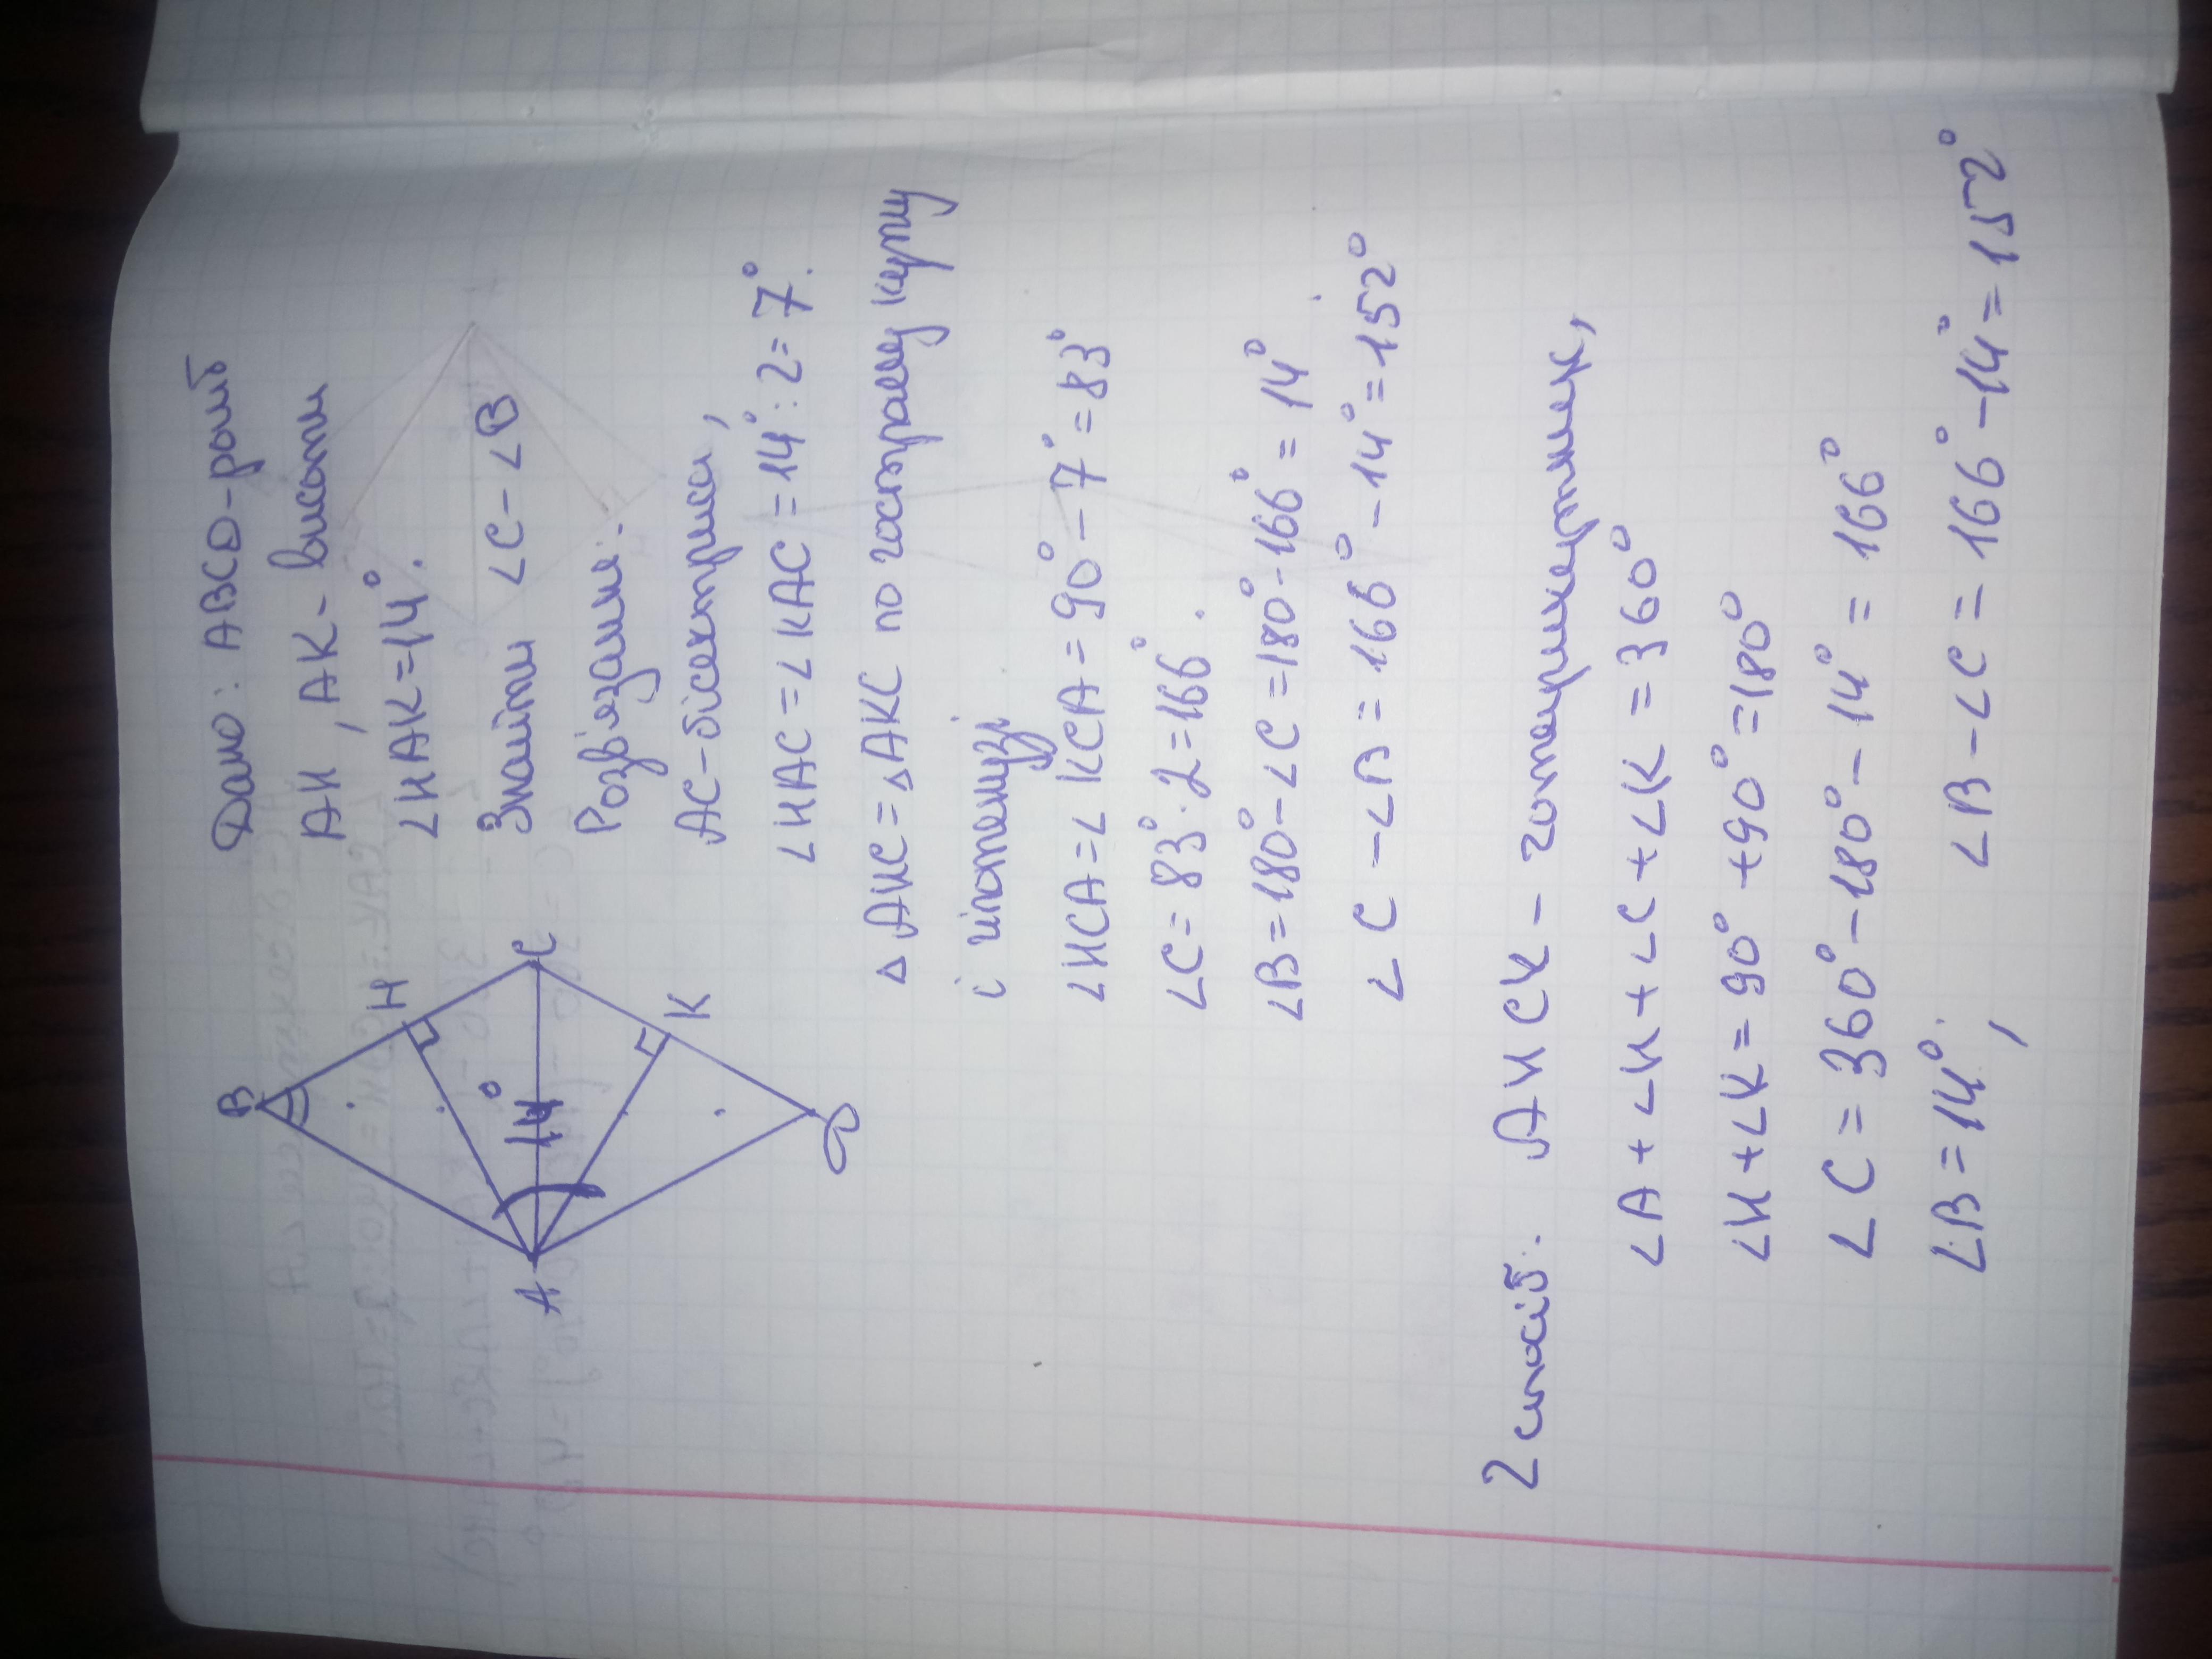 Дано: ABCD-ромб
AH, AK - висоти
∠HAK=14°.
Знайти ∠C-∠B
Розв'язання:
AC-бісектриса,
∠HAC=∠KAC=14°:2=7°.
△AHC=△AKC по гострому куту
і гіпотенузі
∠HCA=∠KCA=90°-7°=83°
∠C=83°·2=166°.
∠B=180°-∠C=180°-166°=14°
∠C-∠B=166°-14°=152°
B
H
C
14°
K
A
D
2 спосіб. AHCK - чотирикутник,
∠A+∠H+∠C+∠K=360°
∠H+∠K=90°+90°=180°
∠C=360°-180°-14°=166°
∠B=14°; ∠B-∠C=166°-14°=152°